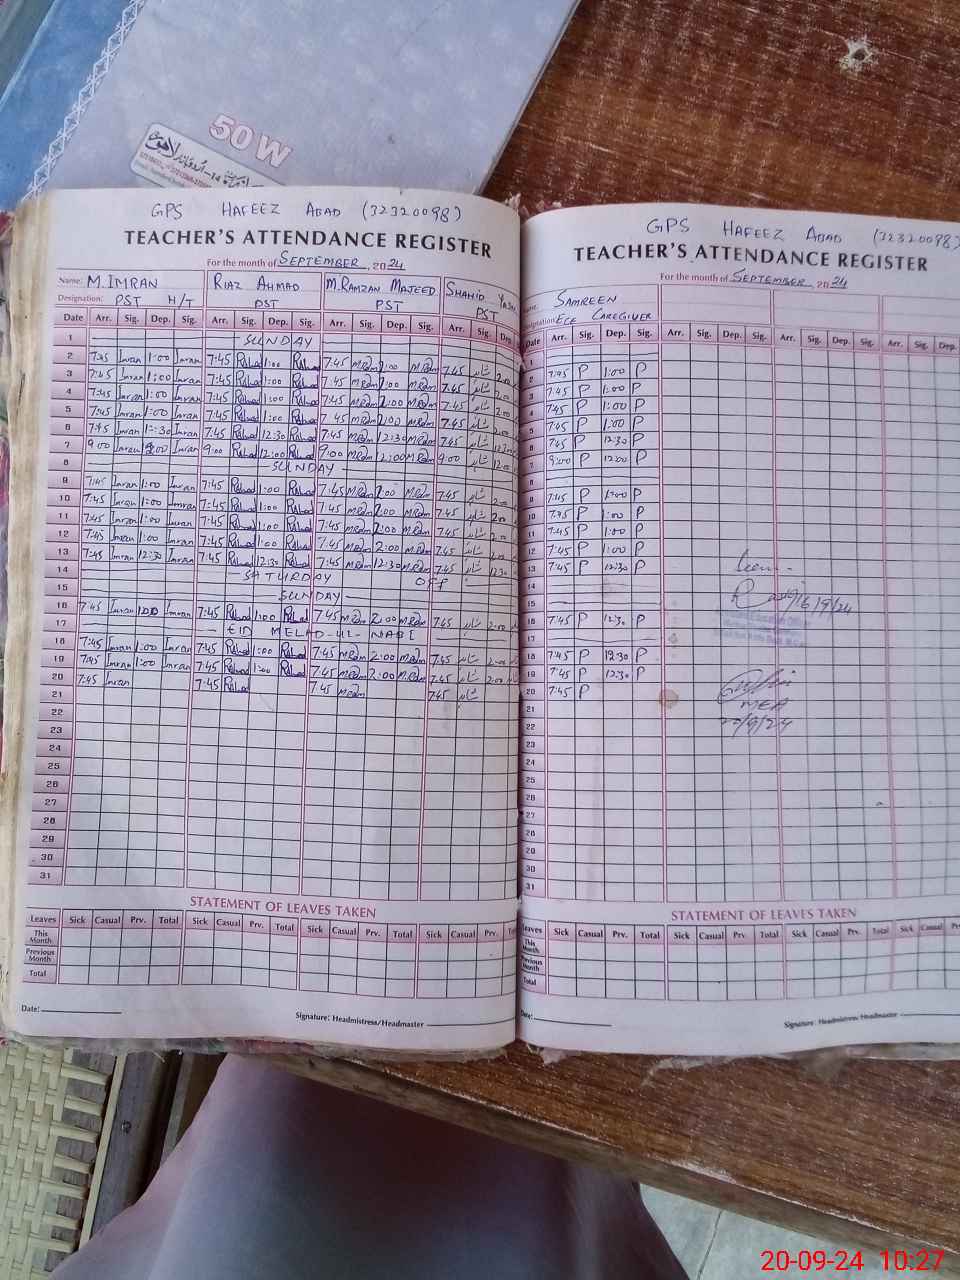 50 W
GPS HAFEEZ ABAD (32320098)
TEACHER'S ATTENDANCE REGISTER
For the month of SEPTEMBER, 2024
Name: M. IMRAN RIAZ AHMAD M. RAMZAN MAJEED SHAHID
Designation: PST H/T PST PST PST
Date Arr. Sig. Dep. Sig. Arr. Sig. Dep. Sig. Arr. Sig. Dep. Sig. Arr. Sig. Dep.
1 SUNDAY
2 7:45 Imran 1:00 Imran 7:45 1:00 7:45 2:00 7:45 2:00
3 7:45 Imran 1:00 Imran 7:45 1:00 7:45 2:00 7:45 2:00
4 7:45 Imran 1:00 Imran 7:45 1:00 7:45 2:00 7:45 2:00
5 7:45 Imran 1:00 Imran 7:45 1:00 7:45 2:00 7:45 2:00
6 7:45 Imran Imran 7:45 12:30 7:45 12:30 7:45
7 9:00 Imran Imran 9:00 12:00 9:00 12:00 9:00 12:00
8 SUNDAY
9 7:45 Imran 1:00 Imran 7:45 1:00 7:45 2:00 7:45 2:00
10 7:45 Imran 1:00 Imran 7:45 1:00 7:45 2:00 7:45 2:00
11 7:45 Imran 1:00 Imran 7:45 1:00 7:45 2:00 7:45 2:00
12 7:45 Imran 1:00 Imran 7:45 1:00 7:45 2:00 7:45 2:00
13 7:45 Imran 12:30 Imran 7:45 12:30 7:45 12:30 7:45 12:30
14 SATURDAY OFF
15 SUNDAY
16 7:45 Imran Imran 7:45 1:00 7:45 2:00 7:45 2:00
17 EID MELAD-UL-NABI
18 7:45 Imran 1:00 Imran 7:45 1:00 7:45 2:00 7:45 2:00
19 7:45 Imran 1:00 Imran 7:45 1:00 7:45 2:00 7:45 2:00
20 7:45 Imran 7:45 7:45 7:45
21
22
23
24
25
26
27
28
29
30
31
STATEMENT OF LEAVES TAKEN
Leaves Sick Casual Prv. Total Sick Casual Prv. Total Sick Casual Prv. Total Sick Casual Prv.
This Month
Previous Month
Total
Date:
Signature: Headmistress/Headmaster
GPS HAFEEZ ABAD (32320098)
TEACHER'S ATTENDANCE REGISTER
For the month of SEPTEMBER, 2024
SAMREEN
ECE CAREGIVER
Date Arr. Sig. Dep. Sig. Arr. Sig. Dep. Sig. Arr. Sig. Dep. Sig. Arr. Sig. Dep.
1
2 7:45 P 1:00 P
3 7:45 P 1:00 P
4 7:45 P 1:00 P
5 7:45 P 1:00 P
6 7:45 P 12:30 P
7 9:00 P 12:00 P
8
9 7:45 P 1:00 P
10 7:45 P 1:00 P
11 7:45 P 1:00 P
12 7:45 P 1:00 P
13 7:45 P 12:30 P
14
15
16/9/24
16 7:45 P 12:30 P
17
18 7:45 P 12:30 P
19 7:45 P 12:30 P
20 7:45 P
21
MEA
22
20/9/24
23
24
25
26
27
28
29
30
31
STATEMENT OF LEAVES TAKEN
Leaves Sick Casual Prv. Total Sick Casual Prv. Total Sick Casual Prv. Total Sick Casual
This Month
Previous Month
Total
Date:
Signature: Headmistress/Headmaster
20-09-24 10:27